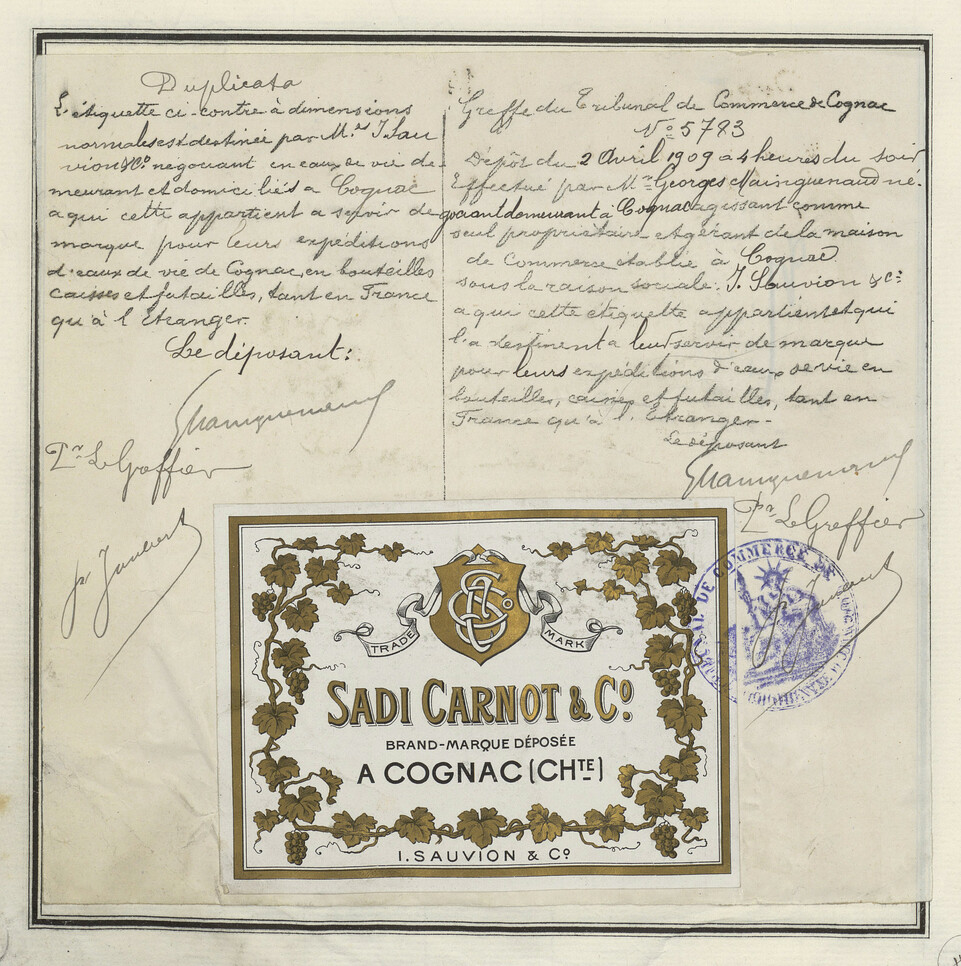 Duplicata
L'étiquette ci-contre à dimensions
normales est destinée par M.rs J. Sau
vion & Co négociant en eaux de vie de
meurant et domiciliés a Cognac
a qui cette appartient a servir de
marque pour leurs expéditions
d'eaux de vie de Cognac, en bouteilles
caisses et futailles, tant en France
qu'à l'Etranger.
Le déposant:
GMainguenaud
Pr Le Greffier
Greffe du Tribunal de Commerce de Cognac
No 5783
Dépôt du 2 Avril 1909 a 4 heures du soir
Effectué par Mr Georges Mainguenaud né-
gociant demeurant à Cognac agissant comme
seul propriétaire et gérant de la maison
de Commerce etablie à Cognac
sous la raison sociale: J. Sauvion & Co
a qui cette étiquette appartient et qui
l'a destinent a leur servir de marque
pour leurs expéditions d'eaux de vie en
bouteilles, caisses et futailles, tant en
France qu'à l'Etranger-
Le déposant
GMainguenaud
Pr Le Greffier
TRIBUNAL DE COMMERCE DE
TRADE MARK
SADI CARNOT & Co.
BRAND-MARQUE DÉPOSÉE
A COGNAC (CHTE)
I. SAUVION & Co